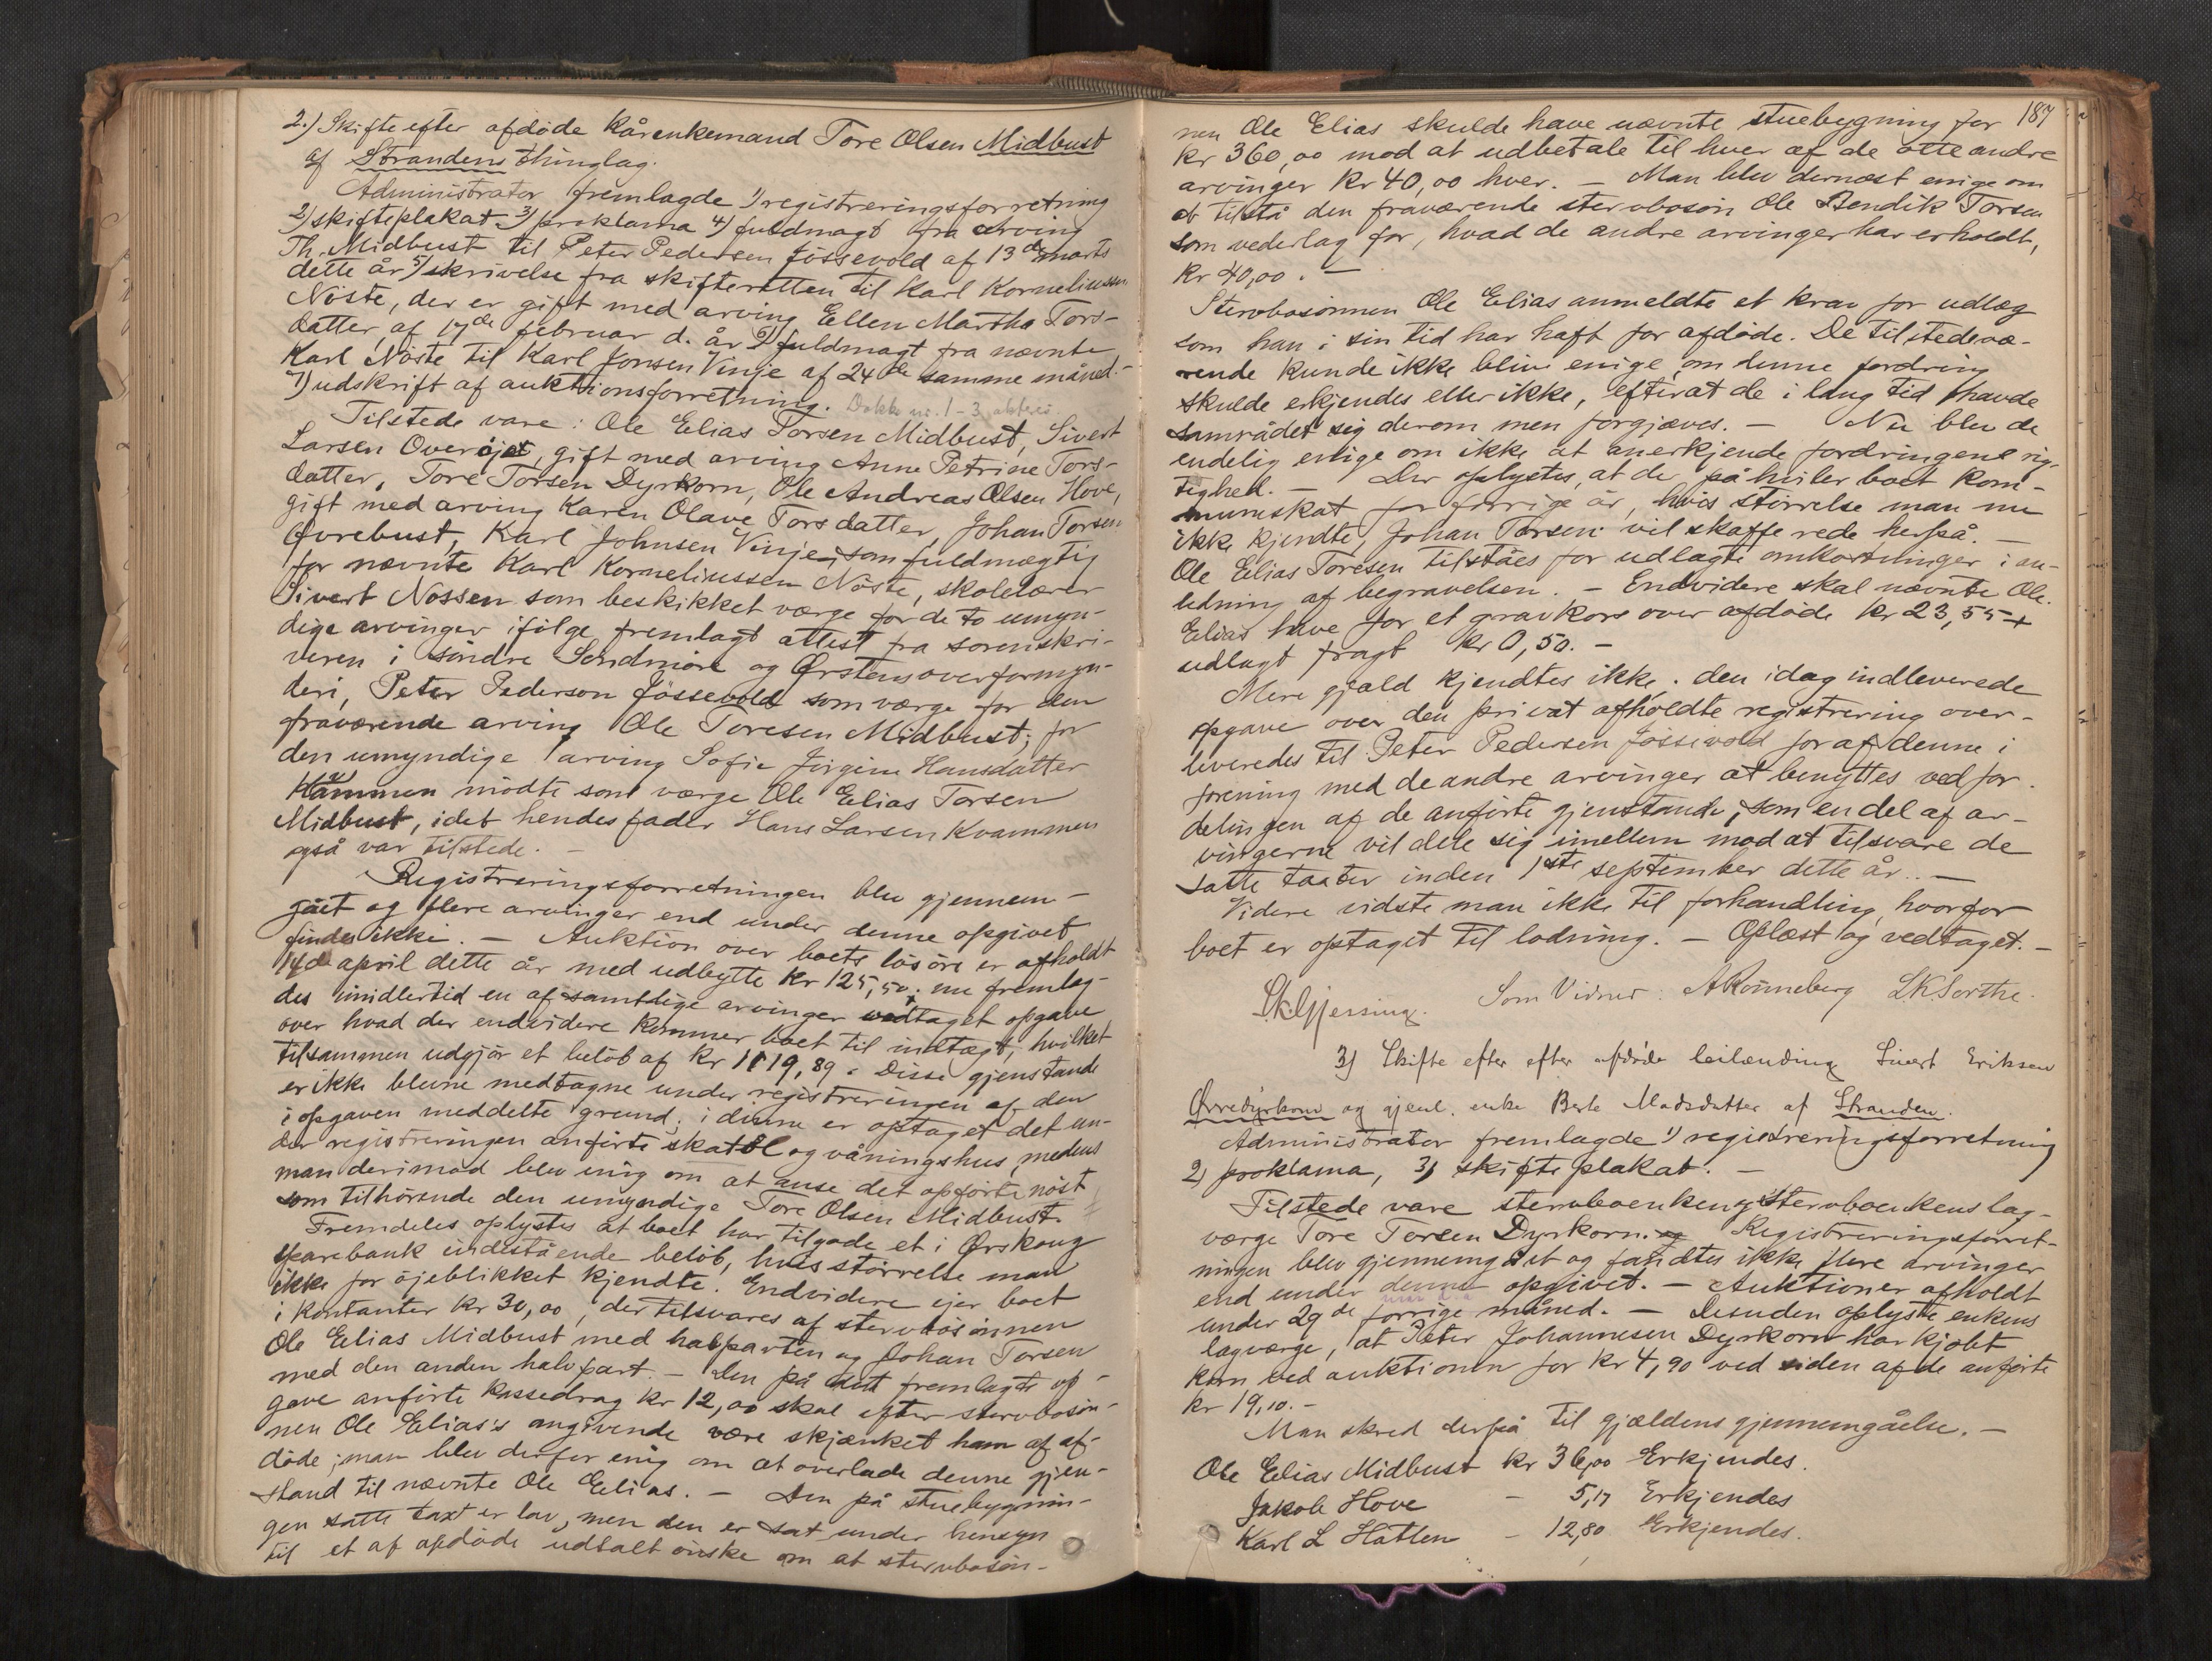 2.) Skifte efter afdöde kårenkemand Tore Olsen Midbust
af Strandens thinglag.
Administrator fremlagde 1) registreringsforretning
2) skifteplakat 3) proklama 4) fuldmagt fra arving
Th. Midbust til Peter Pedersen Jössevold af 13de marts
dette år 5) skrivelse fra skifteretten til Karl Korneliussen
Nöste, der er gift med arving Ellen Martha Tors-
datter, af 17de februar d. år 6) fuldmagt fra nævnte
Karl Nöste til Karl Jonsen Vinje af 24de samme måned. -
7) udskrift af auktionsforretning. Dokk nr. 1 - 3
Tilstede vare: Ole Elias Torsen Midbust, Sivert
Larsen Overöjet, gift med arving Anne Petrine Tors-
datter, Tore Torsen Dyrkorn, Ole Andreas Olsen Hove,
gift med arving Karen Olave Torsdatter, Johan Torsen
Övrebust, Karl Johnsen Vinje, som fuldmægtig
for nævnte Karl Korneliussen Nöste, skolelærer
Sivert Nossen som beskikket værge for de to umyn-
dige arvinger ifölge fremlagt attest fra sorenskri-
veren i söndre Söndmöre og Örstens overformyn-
deri, Peter Pederson Jössevold som værge for den
fraværende arving Ole Toresen Midbust; for
den umyndige arving Sofie Jörgine Hansdatter
Kvammen mödte som værge Ole Elias Torsen
Midbust, idet hendes fader Hans Larsen Kvammen
også var tilstede. -
Registreringsforretningen blev gjennem-
gået og flere arvinger end under denne opgivet
findes ikke. - Auktion over boets lösöre er afholdt
14de april dette år med udbytte kr 125,50; nu fremlag-
des imidlertid en af samtlige arvinger vedtaget opgave
over hvad der endvidere kommer boet til indtægt, hvilket
tilsammen udgjör et belöb af kr 1119,89. Disse gjenstande
er ikke blevne medtagne under registreringen af den
i opgaven meddelte grund; i denne er optaget det un-
der registreringen anförte skatol og våningshus, medens
man derimod blev enig om at anse det opförte nöst
som tilhörende den umyndige Tore Olsen Midbust.
Fremdeles oplystes at boet har tilgode et i Örskoug
sparebank indestående belöb, hvis störrelse man
ikke for öjeblikket kjendte. Endvidere ejer boet
i kontanter kr 30,00, der tilsvares af stervbosönnen
Ole Elias Midbust med halvparten og Johan Torsen
med den anden halvpart. - Den på den fremlagte op-
gave anförte kassedrag kr 12,00 skal efter stervbosön-
nen Ole Elias's angivende være skjænket ham af af-
döde; man blev derfor enig om at overlade denne gjen-
stand til nævnte Ole Elias. - Den på stuebygnin-
gen satte taxt er lav, men den er sat under hensyn
til et af afdöde udtalt önske om at stervbosön-
187
nen Ole Elias skulde have nævnte stuebygning for
kr 360,00 mod at udbetale til hver af de otte andre
arvinger kr 40,00 hver. - Man blev dernæst enige om
at tilstå den fraværende stervbosön Ole Bendik Torsen
som vederlag for, hvad de andre arvinger har erholdt,
kr 40,00. -
Stervbosönnen Ole Elias anmeldte et krav for udlæg
som han i sin tid har haft for afdöde. De tilstedevæ-
rende kunde ikke blive enige, om denne fordring
skulde erkjendes eller ikke, efterat de i lang tid havde
samrådet sig derom men forgjæves. - Nu blev de
endelig enige om ikke at anerkjende fordringens rig-
tighed. - Der oplystes, at der påhviler boet kom-
muneskat for forrige år, hvis störrelse man nu
ikke kjendte; Johan Torsen vil skaffe rede herpå. -
Ole Elias Toresen tilståes for udlagte omkostninger i an-
ledning af begravelsen. - Endvidere skal nævnte Ole
Elias have for et gravkors over afdöde kr 23,55 +
udlagt fragt kr 0,50. -
Mere gjæld kjendtes ikke. den idag indleverede
opgave over den privat afholdte registrering over-
leveredes til Peter Pedersen Jössevold for af denne i
forening med de andre arvinger at benyttes ved for-
delingen af de anförte gjenstande, som en del af ar-
vingerne vil dele sig imellem mod at tilsvare de
satte taxter inden 1ste september dette år. -
Videre vidste man ikke til forhandling, hvorfor
boet er optaget til lodning. - Oplæst og vedtaget. -
Som Vidner: A Rönneberg LK Sorthe.
3) Skifte efter efter afdöde leilænding Sivert Eriksen
Övredyrkorn og gjenl. enke Berte Madsdatter af Stranden.
Administrator fremlagde 1) registreringsforretning
2) proklama, 3) skifteplakat. -
Tilstede vare stervboenken og stervboenkens lag-
værge Tore Torsen Dyrkorn. Registreringsforret-
ningen blev gjennemgået og fandtes ikke flere arvinger
end under denne opgivet. - Auktioner afholdt
under 29de forrige måned. - Desuden oplyste enkens
lagværge, at Peter Johannesen Dyrkorn har kjöbt
korn ved auktionen for kr 4,90 ved siden af de anförte
kr 19,10. -
Man skred derpå til gjældens gjennemgåelse. -
Ole Elias Midbust kr 36,00 Erkjendes.
Jakob Hove - 5,17 Erkjendes
Karl L Hatlen - 12,80 Erkjendes.